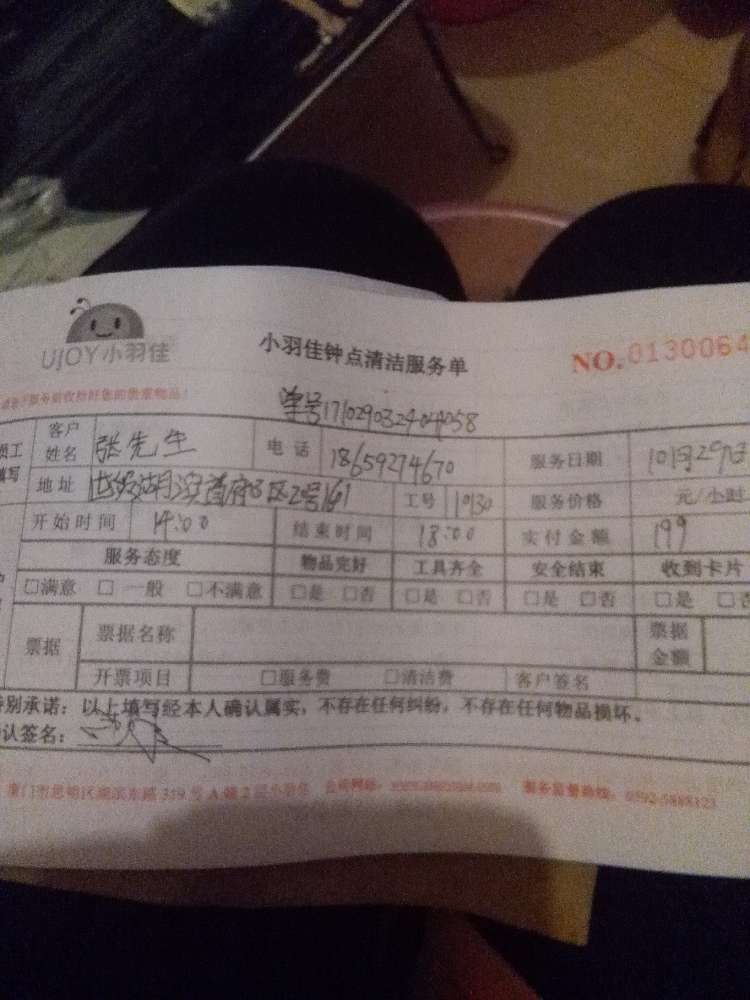 UJOY小羽佳
小羽佳钟点清洁服务单
NO.0130064
服务前收拾好您的贵重物品!
单号171029032404058
客户姓名 张先生 电话 18659274670 服务日期 10月29日
地址 湖滨首府 工号 11030 服务价格 元/小时
开始时间 14:00 结束时间 18:00 实付金额 199
服务态度 物品完好 工具齐全 安全结束 收到卡片
□满意 □一般 □不满意 □是 □否 □是 □否 □是 □否 □是 □否
票据 票据名称 票据金额
开票项目 □服务费 □清洁费 客户签名
特别承诺:以上填写经本人确认属实,不存在任何纠纷,不存在任何物品损坏。
确认签名:
厦门市思明区湖滨东路319号A幢2层小羽佳 公司网站: 服务监督热线:0592-5888123